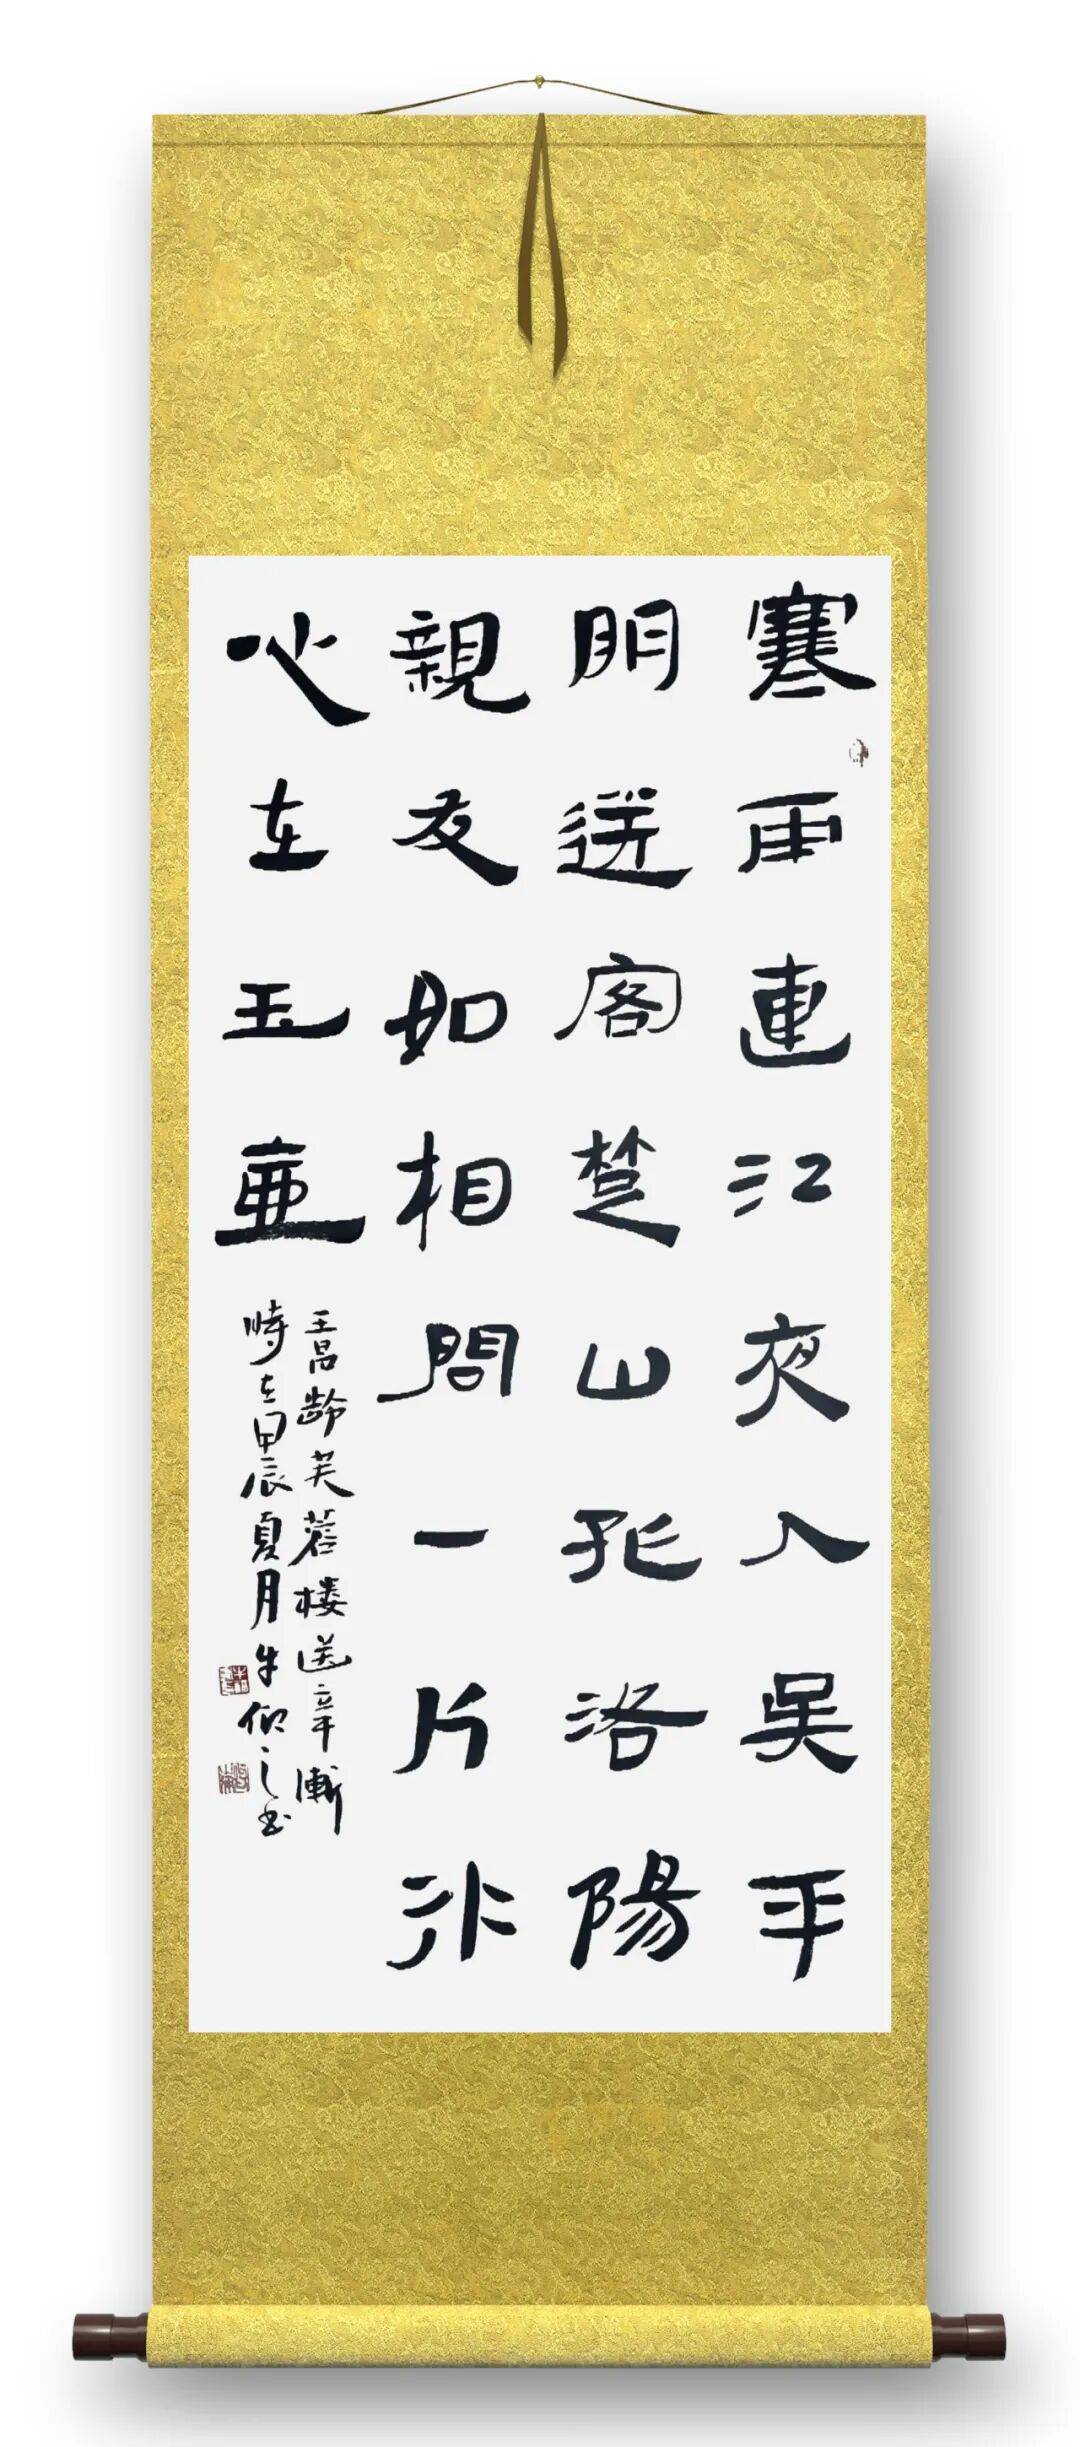 寒雨連江夜入吳平
明送客楚山孤洛陽
親友如相問一片冰
心在玉壺
王昌龄芙蓉楼送辛漸
時在甲辰夏月牛仰之书